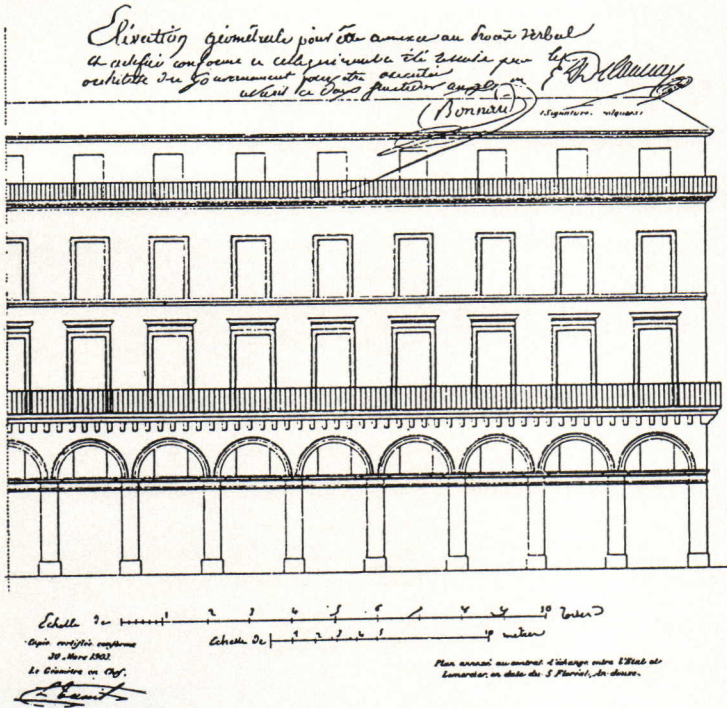 Elévation géométrale pour être annexée au Procès Verbal
et certifiée conforme a celle qui nous a été remise par les
architecte du Gouvernement pour être
(Bonnard)
Delaunay
(Signature
Echelle de 1 2 3 4 5 6 7 8 9 10 Toises
Echelle de 1 2 3 4 5 10 mètres
Copie certifiée conforme
30 Mars 1903
Le Géomètre en Chef.
Plan annexé au contrat d'échange entre l'Etat et
Lemercier, en date du 5 Floréal, An douze.